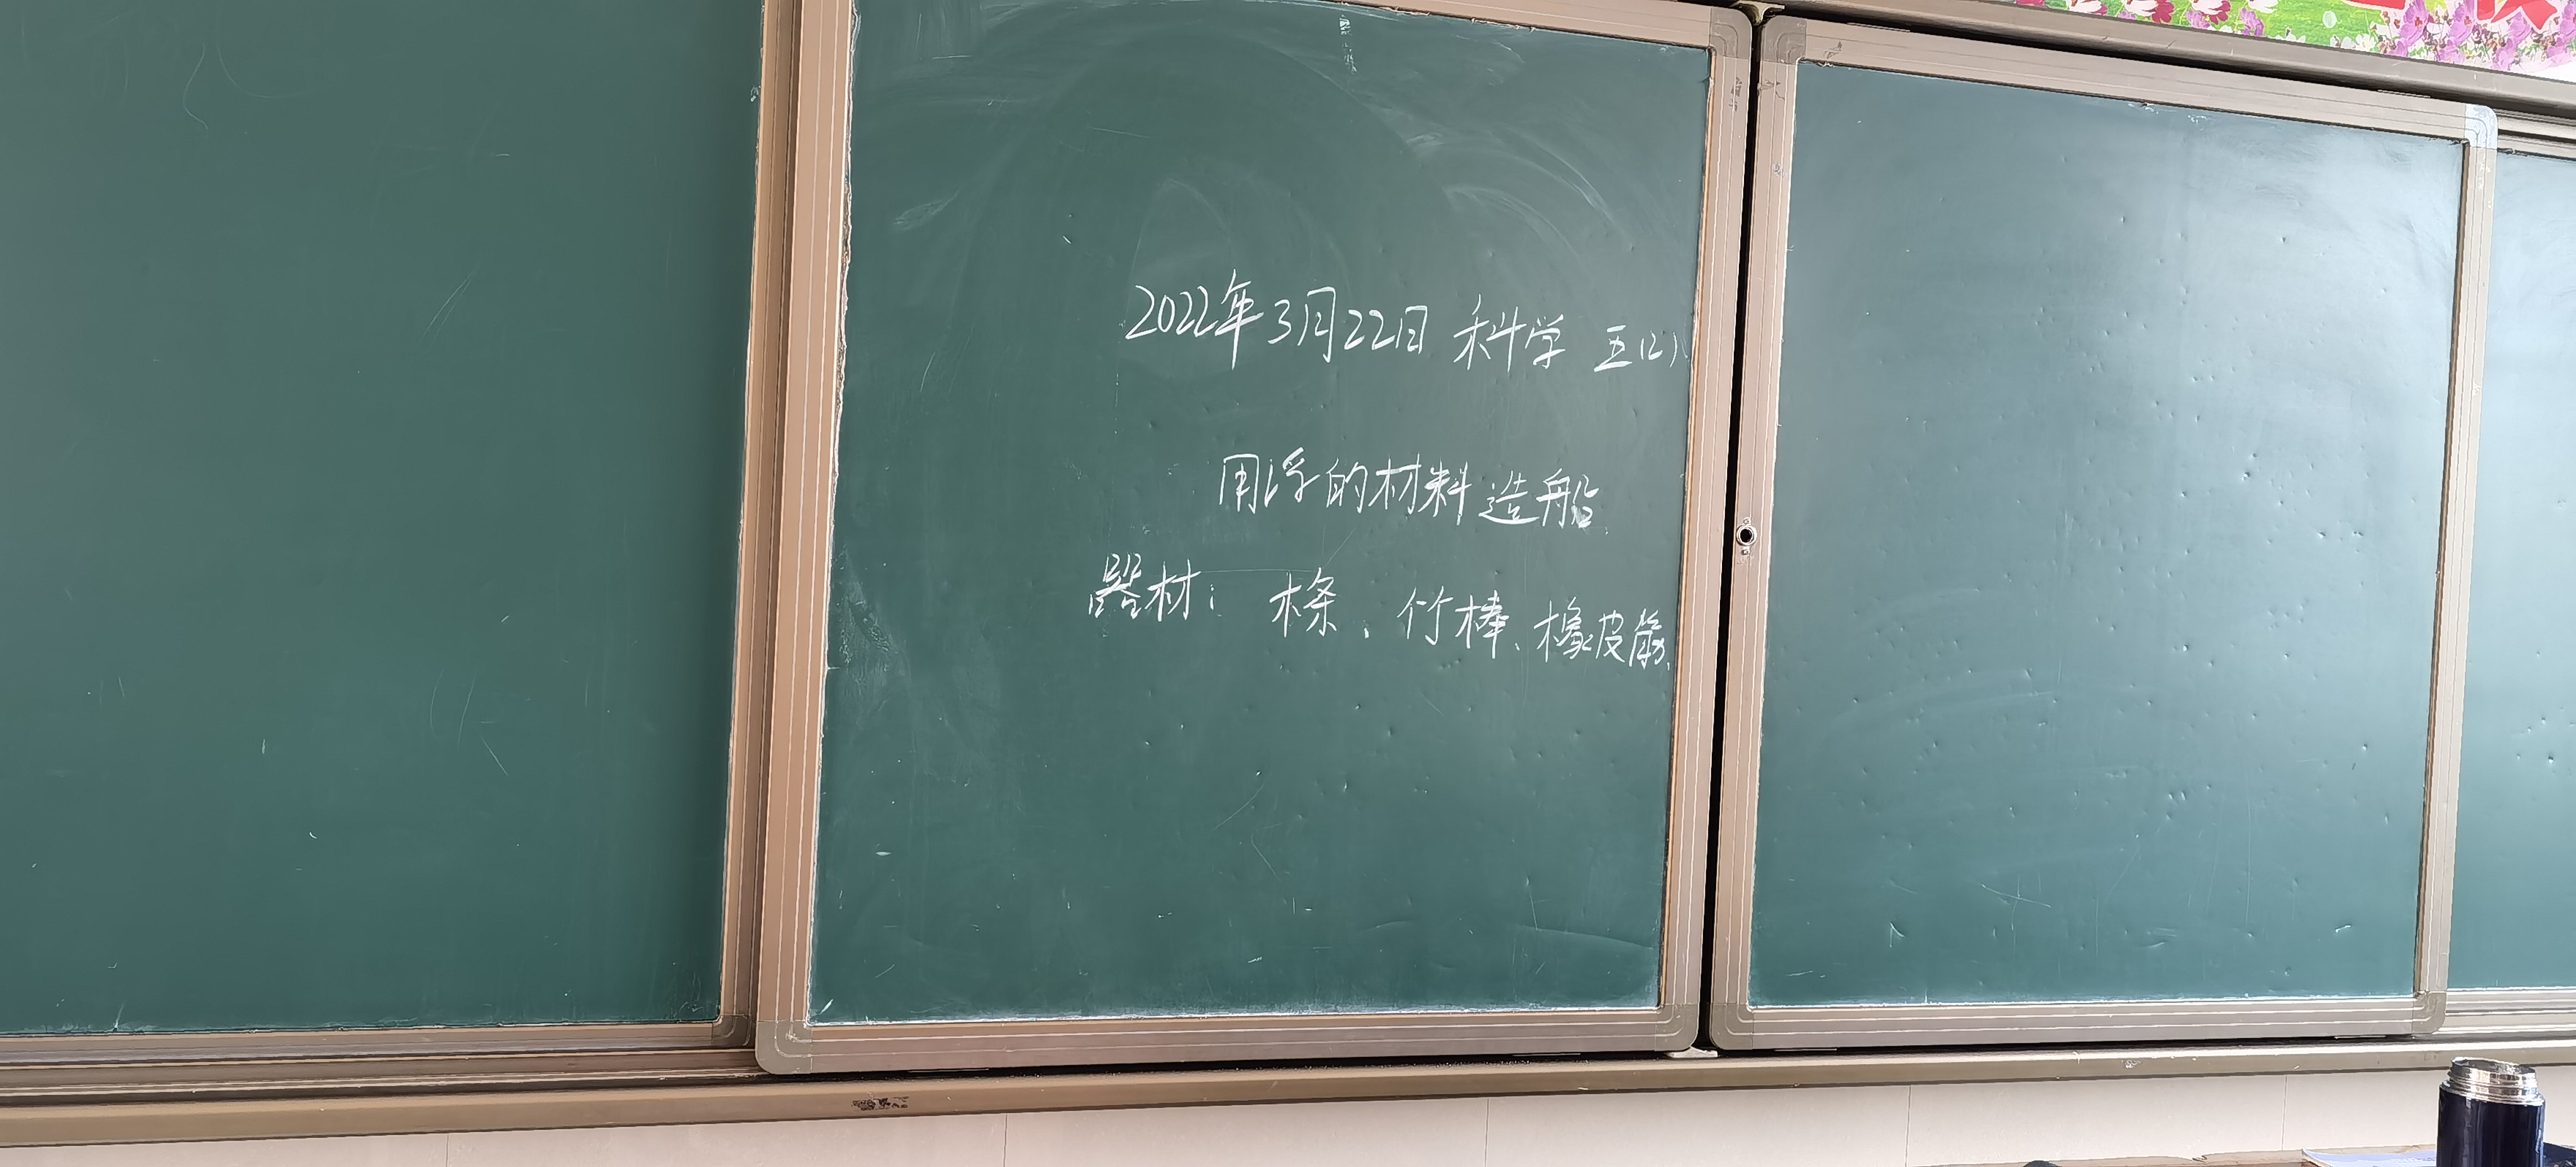 2022年3月22日 科学 五(2)
用浮的材料造船
器材: 木条、竹棒、橡皮筋、